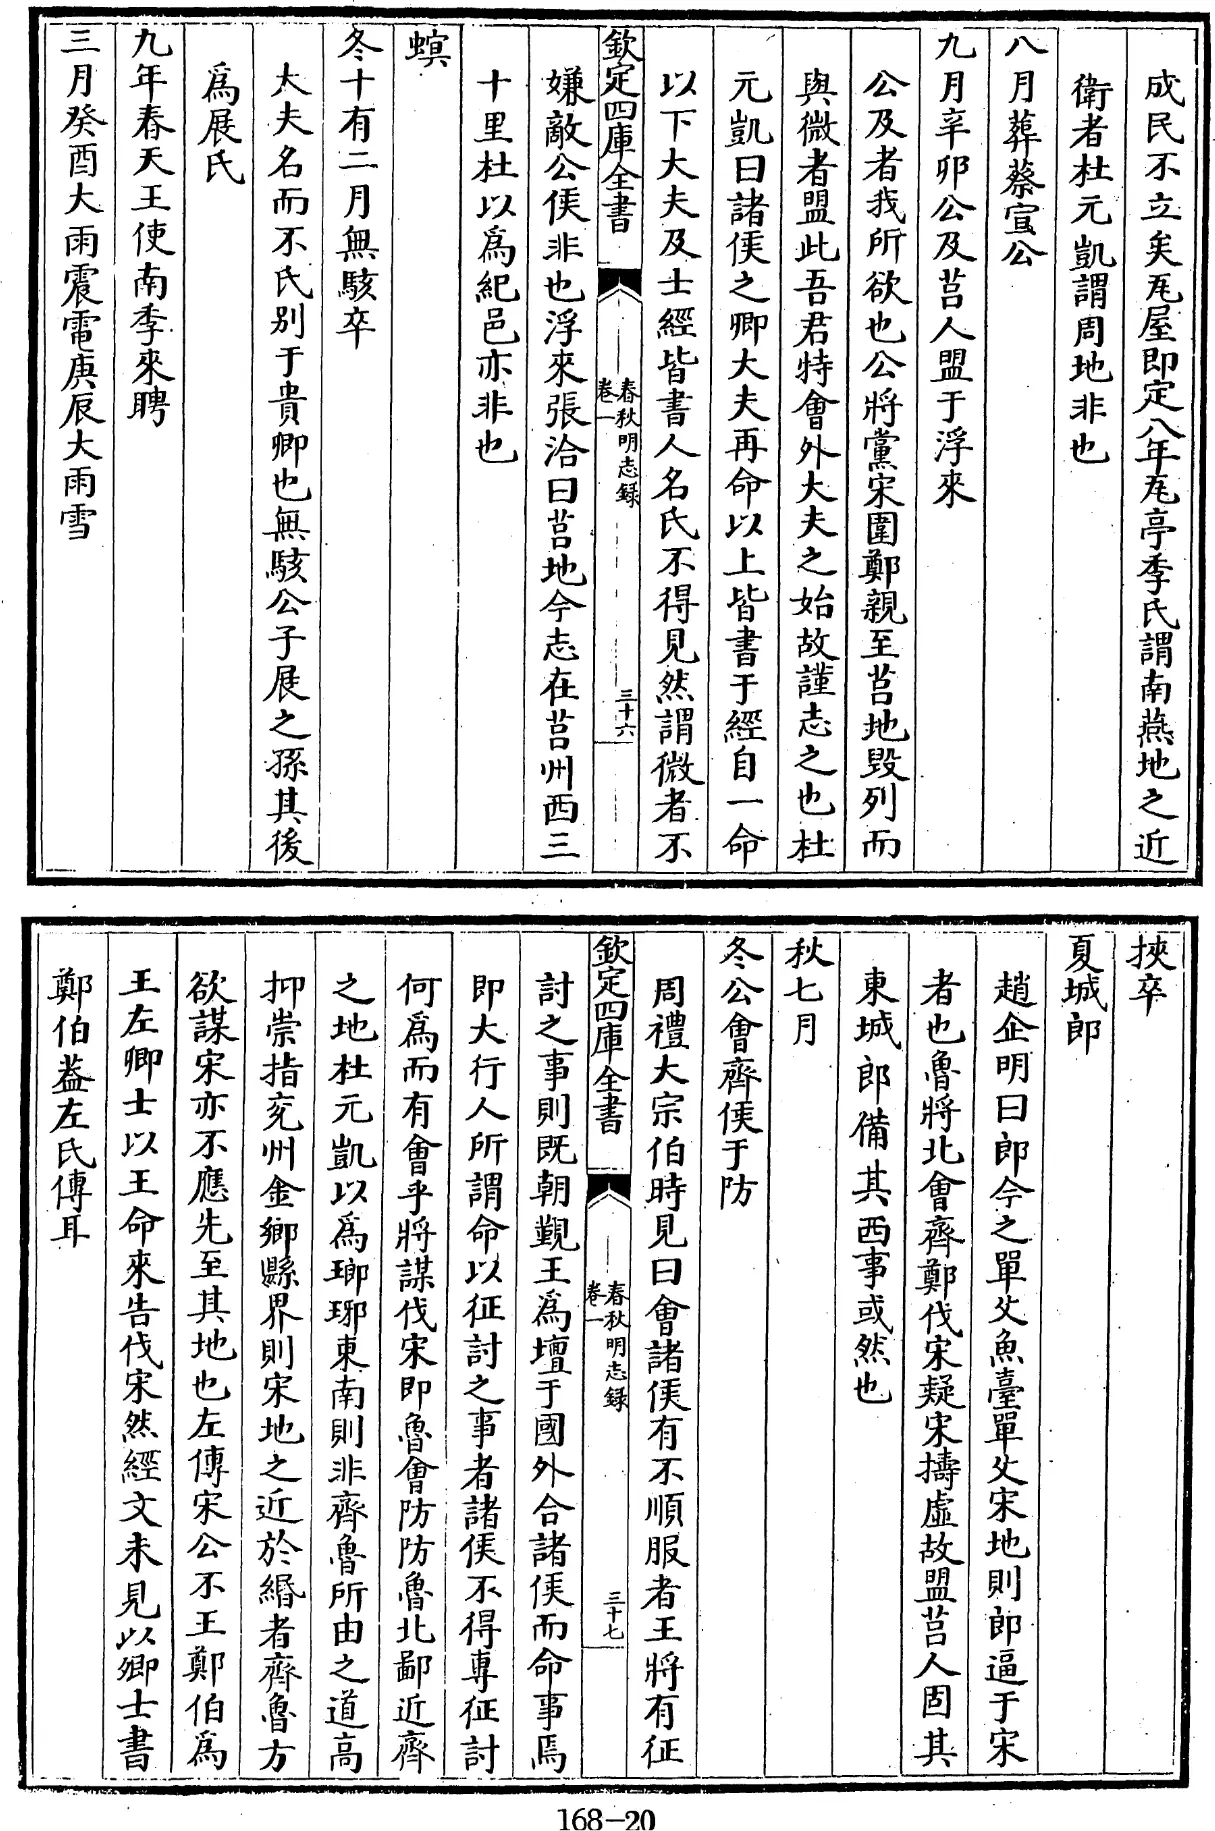 成民不立矣瓦屋即定八年瓦亭季氏謂南燕地之近
衛者杜元凱謂周地非也
八月葬蔡宣公
九月辛卯公及莒人盟于浮來
公及者我所欲也公將黨宋圍鄭親至莒地毀列而
與微者盟此吾君特會外大夫之始故謹志之也杜
元凱曰諸侯之卿大夫再命以上皆書于經自一命
以下大夫及士經皆書人名氏不得見然謂微者不
欽定四庫全書
春秋明志録
卷一
三十六
嫌敵公侯非也浮來張洽曰莒地今志在莒州西三
十里杜以爲紀邑亦非也
螟
冬十有二月無駭卒
大夫名而不氏别于貴卿也無駭公子展之孫其後
爲展氏
九年春天王使南季來聘
三月癸酉大雨震電庚辰大雨雪
挾卒
夏城郎
趙企明曰郎今之單父魚臺單父宋地則郎逼于宋
者也魯將北會齊鄭伐宋疑宋擣虛故盟莒人固其
東城郎備其西事或然也
秋七月
冬公會齊侯于防
周禮大宗伯時見曰會諸侯有不順服者王將有征
欽定四庫全書
春秋明志録
卷一
三十七
討之事則既朝覲王爲壇于國外合諸侯而命事焉
即大行人所謂命以征討之事者諸侯不得專征討
何爲而有會乎將謀伐宋即魯會防防魯北鄙近齊
之地杜元凱以爲瑯琊東南則非齊魯所由之道高
抑崇指兖州金鄉縣界則宋地之近於緡者齊魯方
欲謀宋亦不應先至其地也左傳宋公不王鄭伯爲
王左卿士以王命來告伐宋然經文未見以卿士書
鄭伯葢左氏傳耳
168-20